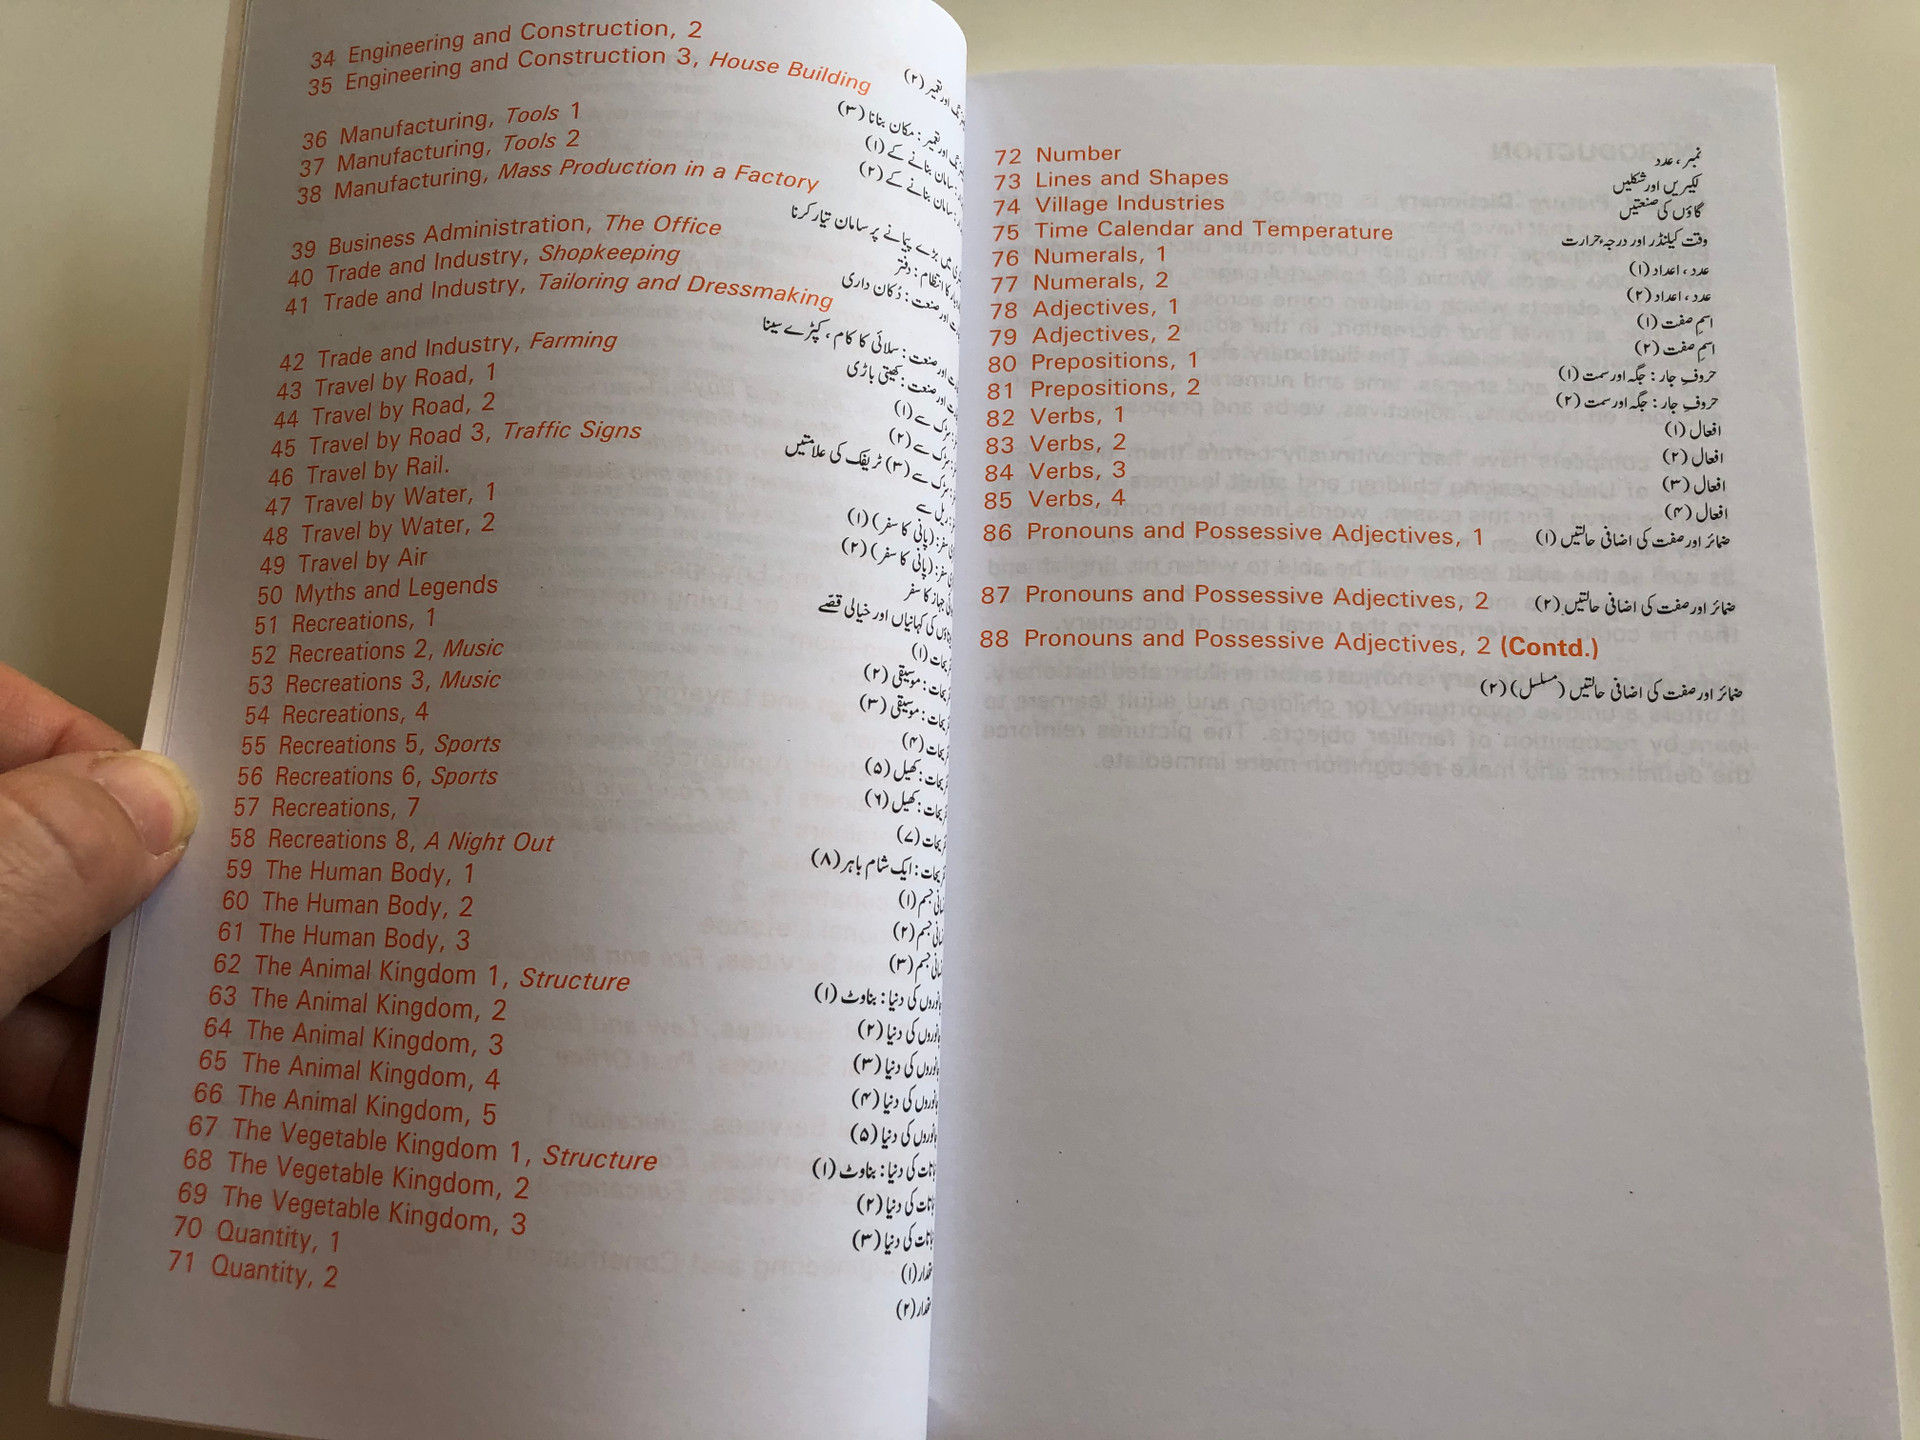 34 Engineering and Construction, 2
35 Engineering and Construction 3, House Building
36 Manufacturing, Tools 1
37 Manufacturing, Tools 2
38 Manufacturing, Mass Production in a Factory
39 Business Administration, The Office
40 Trade and Industry, Shopkeeping
41 Trade and Industry, Tailoring and Dressmaking
42 Trade and Industry, Farming
43 Travel by Road, 1
44 Travel by Road, 2
45 Travel by Road 3, Traffic Signs
46 Travel by Rail.
47 Travel by Water, 1
48 Travel by Water, 2
49 Travel by Air
50 Myths and Legends
51 Recreations, 1
52 Recreations 2, Music
53 Recreations 3, Music
54 Recreations, 4
55 Recreations 5, Sports
56 Recreations 6, Sports
57 Recreations, 7
58 Recreations 8, A Night Out
59 The Human Body, 1
60 The Human Body, 2
61 The Human Body, 3
62 The Animal Kingdom 1, Structure
63 The Animal Kingdom, 2
64 The Animal Kingdom, 3
65 The Animal Kingdom, 4
66 The Animal Kingdom, 5
67 The Vegetable Kingdom 1, Structure
68 The Vegetable Kingdom, 2
69 The Vegetable Kingdom, 3
70 Quantity, 1
71 Quantity, 2
اور تعمیر (۲)
اور تعمیر : مکان بنانا (۳)
سامان بنانے کے (۱)
سامان بنانے کے (۲)
میں بڑے پیمانے پر سامان تیار کرنا
کا انتظام : دفتر
اور صنعت : دُکان داری
اور صنعت : سلائی کا کام ، کپڑے سینا
اور صنعت : کھیتی باڑی
سڑک سے (۱)
سڑک سے (۲)
سڑک سے (۳) ٹریفک کی علامتیں
ریل سے
سفر : (پانی کا سفر) (۱)
سفر : (پانی کا سفر) (۲)
جہاز کا سفر
کی کہانیاں اور خیالی قصّے
(۱)
: موسیقی (۲)
: موسیقی (۳)
(۴)
: کھیل (۵)
: کھیل (۶)
(۷)
: ایک شام باہر (۸)
جسم (۱)
جسم (۲)
جسم (۳)
کی دنیا : بناوٹ (۱)
کی دنیا (۲)
کی دنیا (۳)
کی دنیا (۴)
کی دنیا (۵)
کی دنیا : بناوٹ (۱)
کی دنیا (۲)
کی دنیا (۳)
(۱)
(۲)
72 Number نمبر ، عدد
73 Lines and Shapes لکیریں اور شکلیں
74 Village Industries گاؤں کی صنعتیں
75 Time Calendar and Temperature وقت کیلنڈر اور درجہ حرارت
76 Numerals, 1 عدد ، اعداد (۱)
77 Numerals, 2 عدد ، اعداد (۲)
78 Adjectives, 1 اسمِ صفت (۱)
79 Adjectives, 2 اسمِ صفت (۲)
80 Prepositions, 1 حروفِ جار : جگہ اور سمت (۱)
81 Prepositions, 2 حروفِ جار : جگہ اور سمت (۲)
82 Verbs, 1 افعال (۱)
83 Verbs, 2 افعال (۲)
84 Verbs, 3 افعال (۳)
85 Verbs, 4 افعال (۴)
86 Pronouns and Possessive Adjectives, 1 ضمائر اور صفت کی اضافی حالتیں (۱)
87 Pronouns and Possessive Adjectives, 2 ضمائر اور صفت کی اضافی حالتیں (۲)
88 Pronouns and Possessive Adjectives, 2 (Contd.)
ضمائر اور صفت کی اضافی حالتیں (مسلسل) (۲)